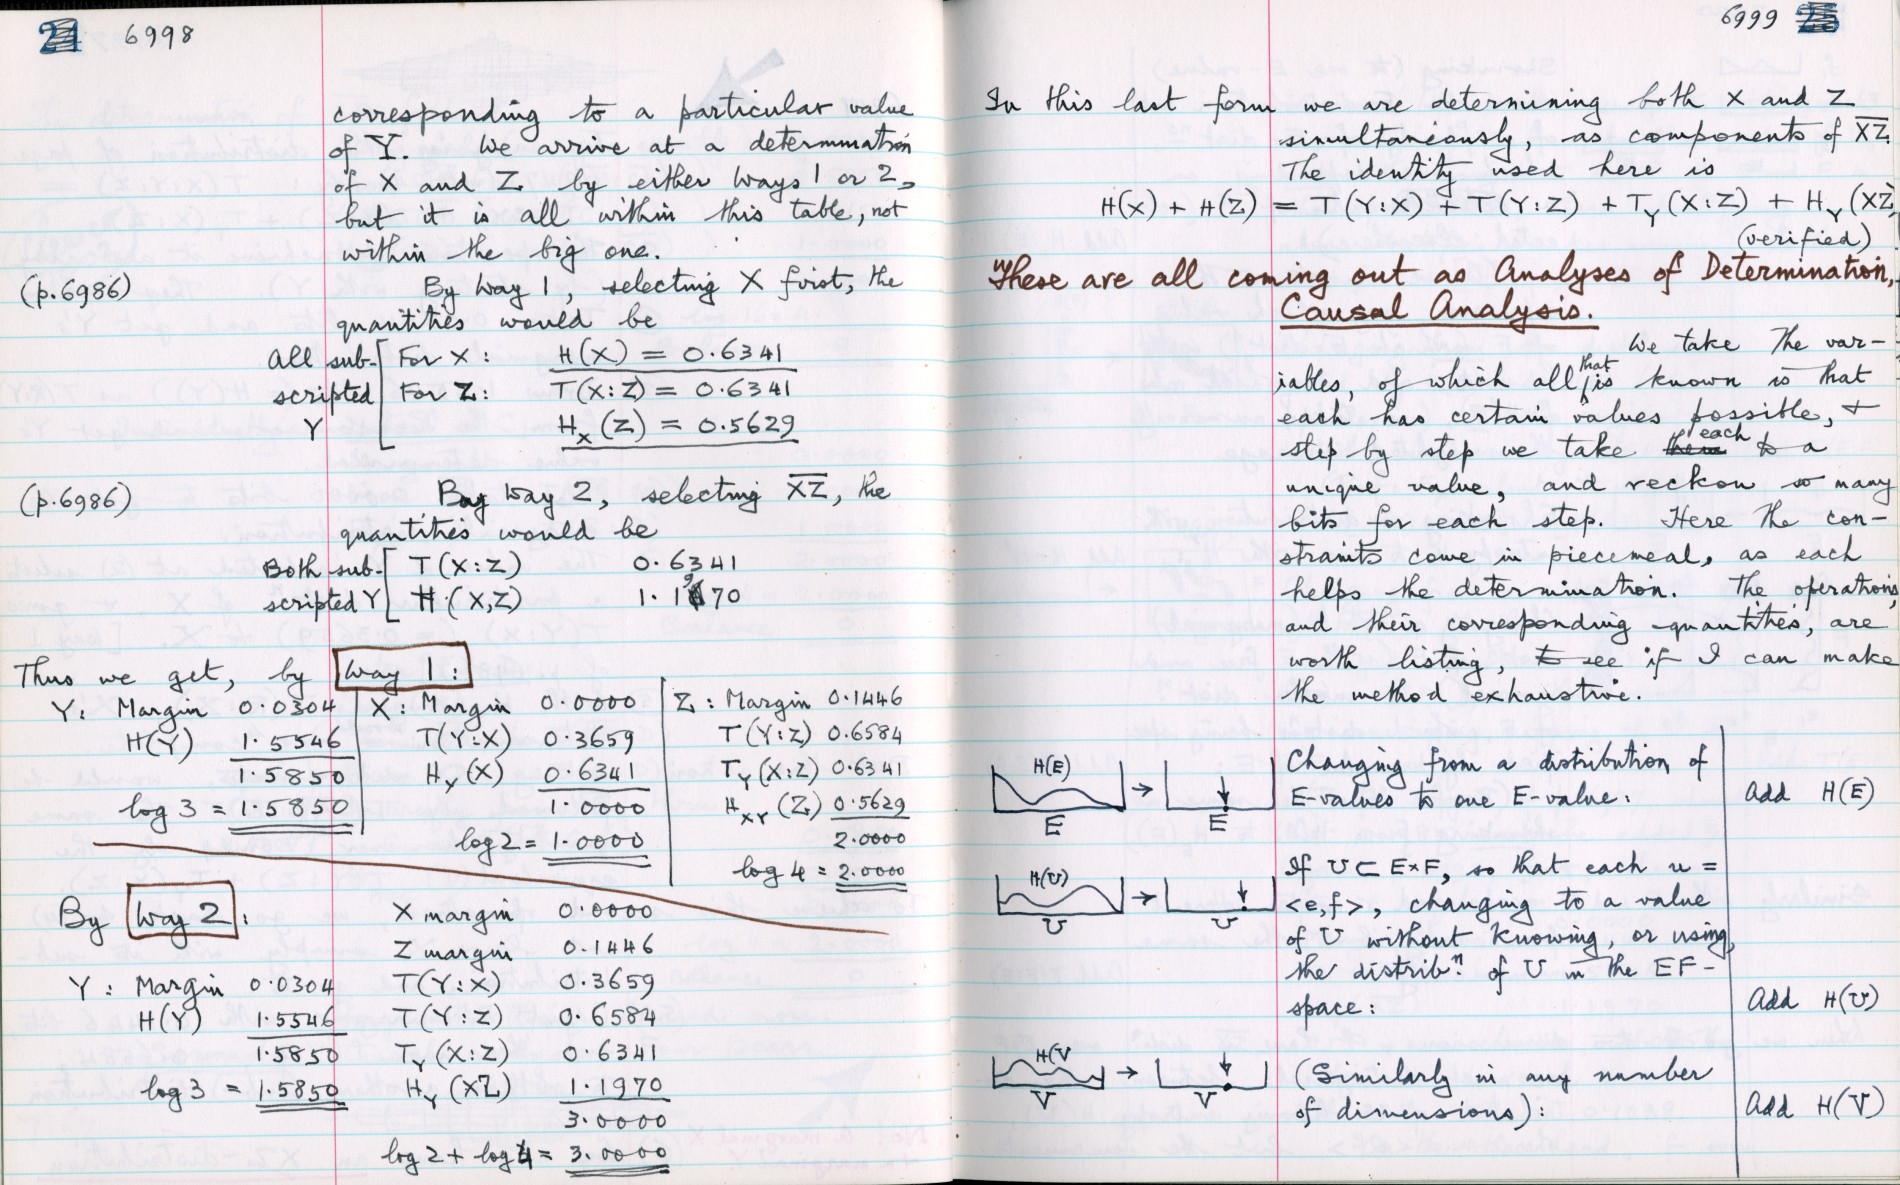 24 6998
corresponding to a particular value
of Y. We arrive at a determination
of X and Z by either ways 1 or 2,
but it is all within this table, not
within the big one.
(p.6986) By Way 1, selecting X first, the
quantities would be
All sub- For X: H(X) = 0.6341
scripted For Z: T(X:Z) = 0.6341
Y H_X(Z) = 0.5629
(p.6986) By Way 2, selecting X̅Z̅, the
quantities would be
Both sub- T(X:Z) 0.6341
scripted Y H(X,Z) 1.1970
Thus we get, by Way 1:
Y: Margin 0.0304 X: Margin 0.0000 Z: Margin 0.1446
H(Y) 1.5546 T(Y:X) 0.3659 T(Y:Z) 0.6584
1.5850 H_Y(X) 0.6341 T_Y(X:Z) 0.6341
log 3 = 1.5850 1.0000 H_XY(Z) 0.5629
log 2 = 1.0000 2.0000
log 4 = 2.0000
By Way 2: X margin 0.0000
Z margin 0.1446
Y: Margin 0.0304 T(Y:X) 0.3659
H(Y) 1.5546 T(Y:Z) 0.6584
1.5850 T_Y(X:Z) 0.6341
log 3 = 1.5850 H_Y(XZ) 1.1970
3.0000
log 2 + log 4 = 3.0000
6999 25
In this last form we are determining both X and Z
simultaneously, as components of X̅Z̅.
The identity used here is
H(X) + H(Z) = T(Y:X) + T(Y:Z) + T_Y(X:Z) + H_Y(XZ)
(verified)
These are all coming out as Analyses of Determination,
Causal Analysis.
We take the var-
iables, of which all that is known is that
each has certain values possible, +
step by step we take them each to a
unique value, and reckon so many
bits for each step. Here the con-
straints come in piecemeal, as each
helps the determination. The operations,
and their corresponding quantities, are
worth listing, to see if I can make
the method exhaustive.
H(E) → Changing from a distribution of
E E E-values to one E-value: Add H(E)
If U ⊂ E×F, so that each u =
H(U) → <e,f>, changing to a value
U U of U without knowing, or using,
the distribⁿ. of U in the EF-
space: Add H(U)
H(V → (Similarly in any number
V V of dimensions): Add H(V)